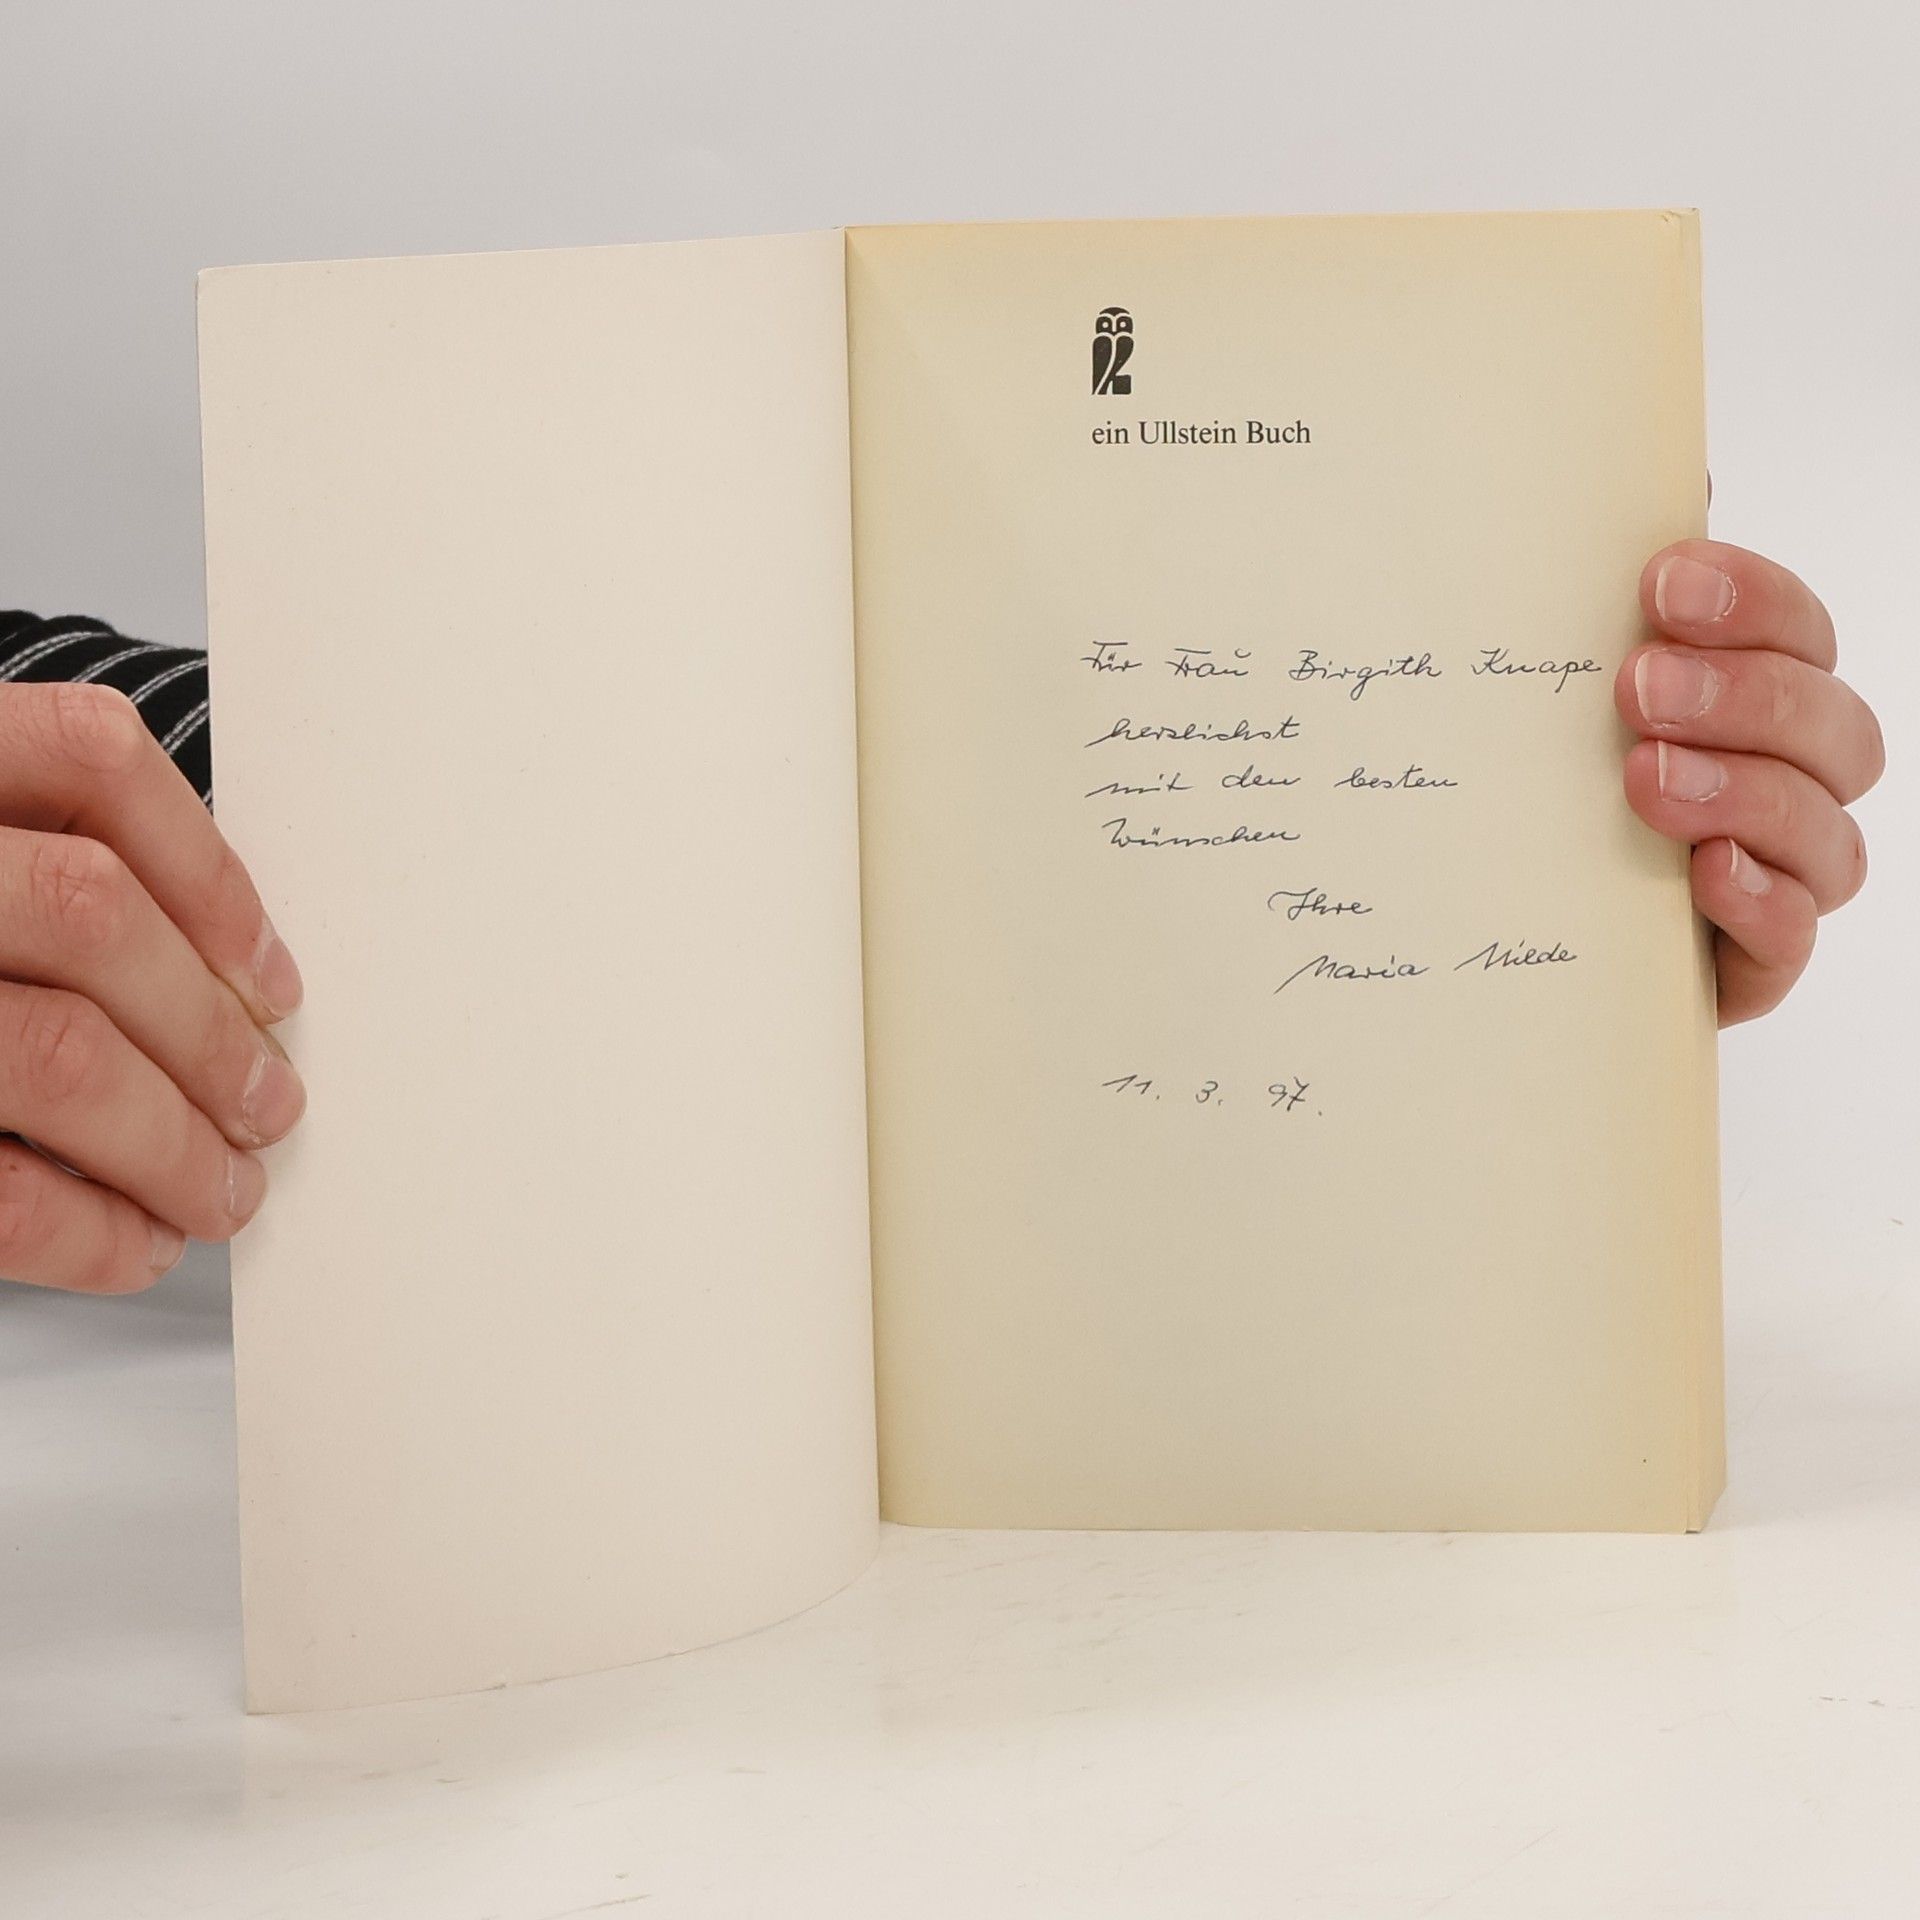 ein Ullstein Buch
Für Frau Birgith Knape
herzlichst
mit den besten
Wünschen
Ihre
Maria Milde
11. 3. 97.